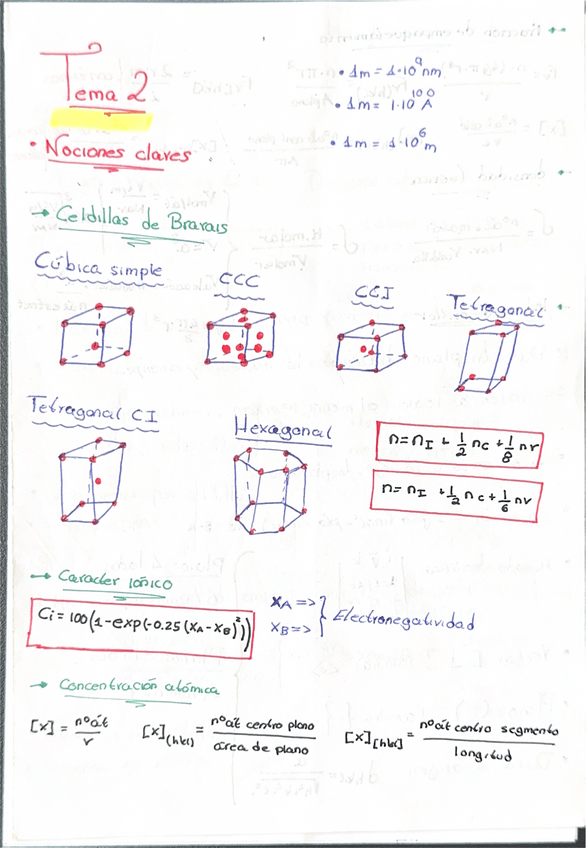 Tema 2
• 1m = 1·10⁹nm
• 1m = 1·10¹⁰⁰ Å
• 1m = 1·10⁶m
• Nociones claves
→ Celdillas de Bravais
Cúbica simple
CCC
CCI
Tetragonal
Tetragonal CI
Hexagonal
n = n_I + 1/2 n_c + 1/8 n_v
n = n_I + 1/2 n_c + 1/6 n_v
→ Caracter iónico
Ci = 100(1-exp(-0.25(x_A-x_B)²))
x_A =>
x_B =>
} Electronegatividad
→ Concentración atómica
[x] = nºat / v
[x](hkl) = nºat centro plano / área de plano
[x][hkl] = nºat centro segmento / longitud